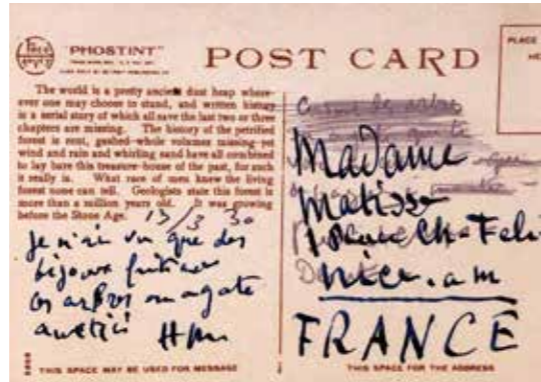 "PHOSTINT"
POST CARD
PLACE
The world is a pretty ancient dust heap wher-
ever one may choose to stand, and written history
is a serial story of which all save the last two or three
chapters are missing. The history of the petrified
forest is rent, gashed—whole volumes missing yet
wind and rain and whirling sand have all combined
to lay bare this treasure-house of the past, for such
it really is. What race of men knew the living
forest none can tell. Geologists state this forest is
more than a million years old. It was growing
before the Stone Age.
13/3 30
Je n'ai vu que des
bijoux
ces arbres en agate
HM
THIS SPACE MAY BE USED FOR MESSAGE
Madame
Matisse
1 Place Ch. Feli
Nice. a m
FRANCE
THIS SPACE FOR THE ADDRESS